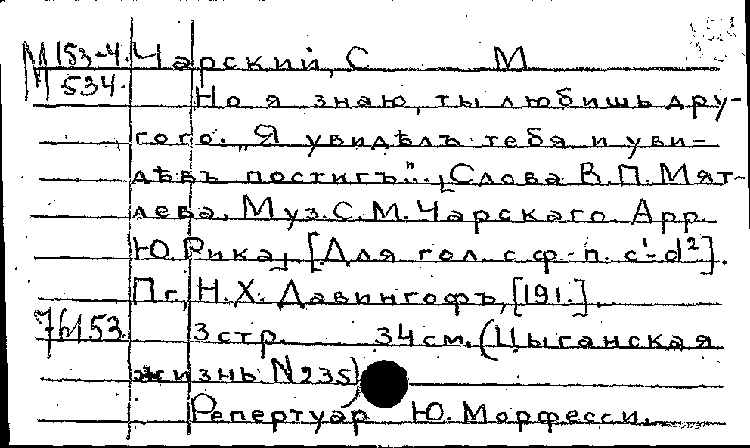 М 153-4 Чарский, С М
534.
Но я знаю, ты любишь дру-
гого. „Я увидѣлъ тебя и уви-
дѣвъ постигъ"... [Слова В.П. Мят-
лева. Муз. С.М. Чарскаго. Арр.
Ю. Рика]. [Для гол. с ф-п. c¹-d²].
Пг., Н.Х. Давингофъ, [191.].
153 3 стр. 34 см. (Цыганская
жизнь N 235)
Репертуар Ю. Морфесси.